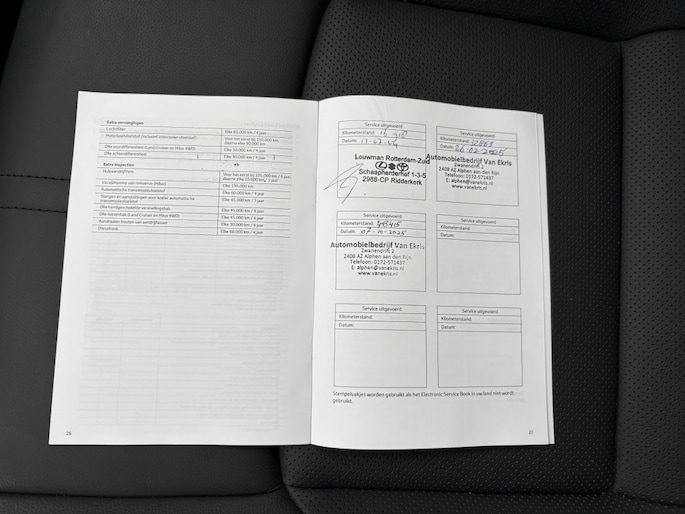 Extra vervangingen
Luchtfilter Elke 60.000 km / 4 jaar
Voor het eerst bij 150.000 km,
daarna elke 90.000 km
Elke 30.000 km / 4 jaar
Olie achterdifferentieel Elke 30.000 km / 4 jaar
Extra inspecties
Hulpaandrijfriem
Elke 105.000 km
Automatische transmissievloeistof Elke 60.000 km / 4 jaar
Slangen en aansluitingen voor koeler automatische
transmissievloeistof Elke 45.000 km / 3 jaar
Olie handgeschakelde versnellingsbak Elke 45.000 km / 4 jaar
Olie tussenbak (Land Cruiser en Hilux 4WD) Elke 45.000 km / 4 jaar
Aandraaien bouten van aandrijfassen Elke 30.000 km / 4 jaar
Elke 60.000 km / 4 jaar
26
Service uitgevoerd
Kilometerstand:
Datum:
Louwman Rotterdam-Zuid
Schaapherderhof 1-3-5
2988-CP Ridderkerk
Service uitgevoerd
Kilometerstand:
Datum: 26-02-2025
Automobielbedrijf Van Ekris
Zwanendrift 2
2408 AZ Alphen aan den Rijn
Telefoon: 0172-571437
E: alphen@vanekris.nl
www.vanekris.nl
Service uitgevoerd
Kilometerstand:
Datum: 07-10-2025
Automobielbedrijf Van Ekris
Zwanendrift 2
2408 AZ Alphen aan den Rijn
Telefoon: 0172-571437
E: alphen@vanekris.nl
www.vanekris.nl
Service uitgevoerd
Kilometerstand:
Datum:
Service uitgevoerd
Kilometerstand:
Datum:
Service uitgevoerd
Kilometerstand:
Datum:
Stempelvakjes worden gebruikt als het Electronic Service Book in uw land niet wordt
gebruikt.
27